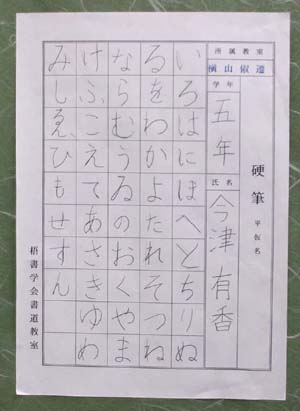 硬筆 平仮名
所属教室
横山
学年
五年
氏名
今津有香
いろはにほへとちりぬ
るをわかよたれそつね
ならむうゐのおくやま
けふこえてあさきゆめ
みしゑひもせすん
梧書学会書道教室